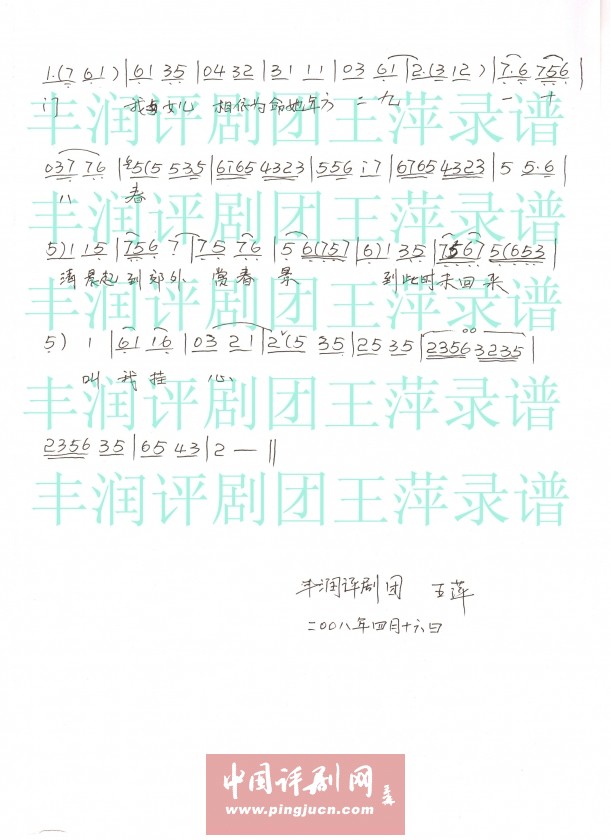 1·(7 6 1) | 61 35 | 04 32 | 31 11 | 03 61 | 2·(3 12) | 7·6 756 |
门 我与女儿 相依为命她年方 二 九 一 十
037 76 | 5(5 535 | 6765 4323 | 556 i7 | 6765 4323 | 5 5·6 |
八 春
5) 1 15 | 756 7 | 75 76 | 5 6(757 | 6) 1 35 | 7567 5(653 |
清晨起到郊外 赏春 景 到此时未回来
5) 1 | 61 16 | 03 21 | 2ˇ(5 35 | 25 35 | 2356 3235 |
叫 我挂 心
2356 35 | 65 43 | 2 — ‖
丰润评剧团王萍录谱
丰润评剧团王萍录谱
丰润评剧团王萍录谱
丰润评剧团王萍录谱
丰润评剧团王萍录谱
丰润评剧团王萍录谱
丰润评剧团 王萍
二00八年四月十六日
中国评剧网
www.pingjucn.com